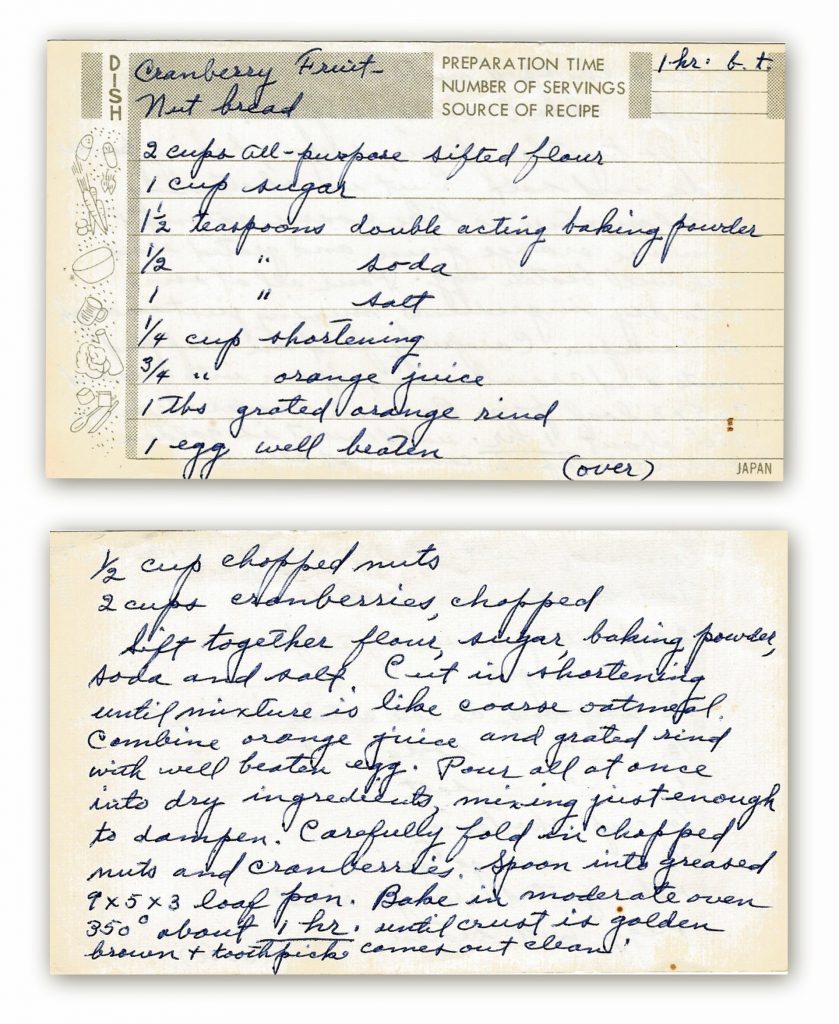 DISH
Cranberry Fruit-
Nut bread
PREPARATION TIME 1 hr. b. t.
NUMBER OF SERVINGS
SOURCE OF RECIPE
2 cups all-purpose sifted flour
1 cup sugar
1 1/2 teaspoons double acting baking powder
1/2 " soda
1 " salt
1/4 cup shortening
3/4 " orange juice
1 Tbs grated orange rind
1 egg well beaten
(over)
JAPAN
1/2 cup chopped nuts
2 cups cranberries, chopped
Sift together flour, sugar, baking powder,
soda and salt. Cut in shortening
until mixture is like coarse oatmeal.
Combine orange juice and grated rind
with well beaten egg. Pour all at once
into dry ingredients, mixing just enough
to dampen. Carefully fold in chopped
nuts and cranberries. Spoon into greased
9x5x3 loaf pan. Bake in moderate oven
350° about 1 hr. until crust is golden
brown + toothpick comes out clean.